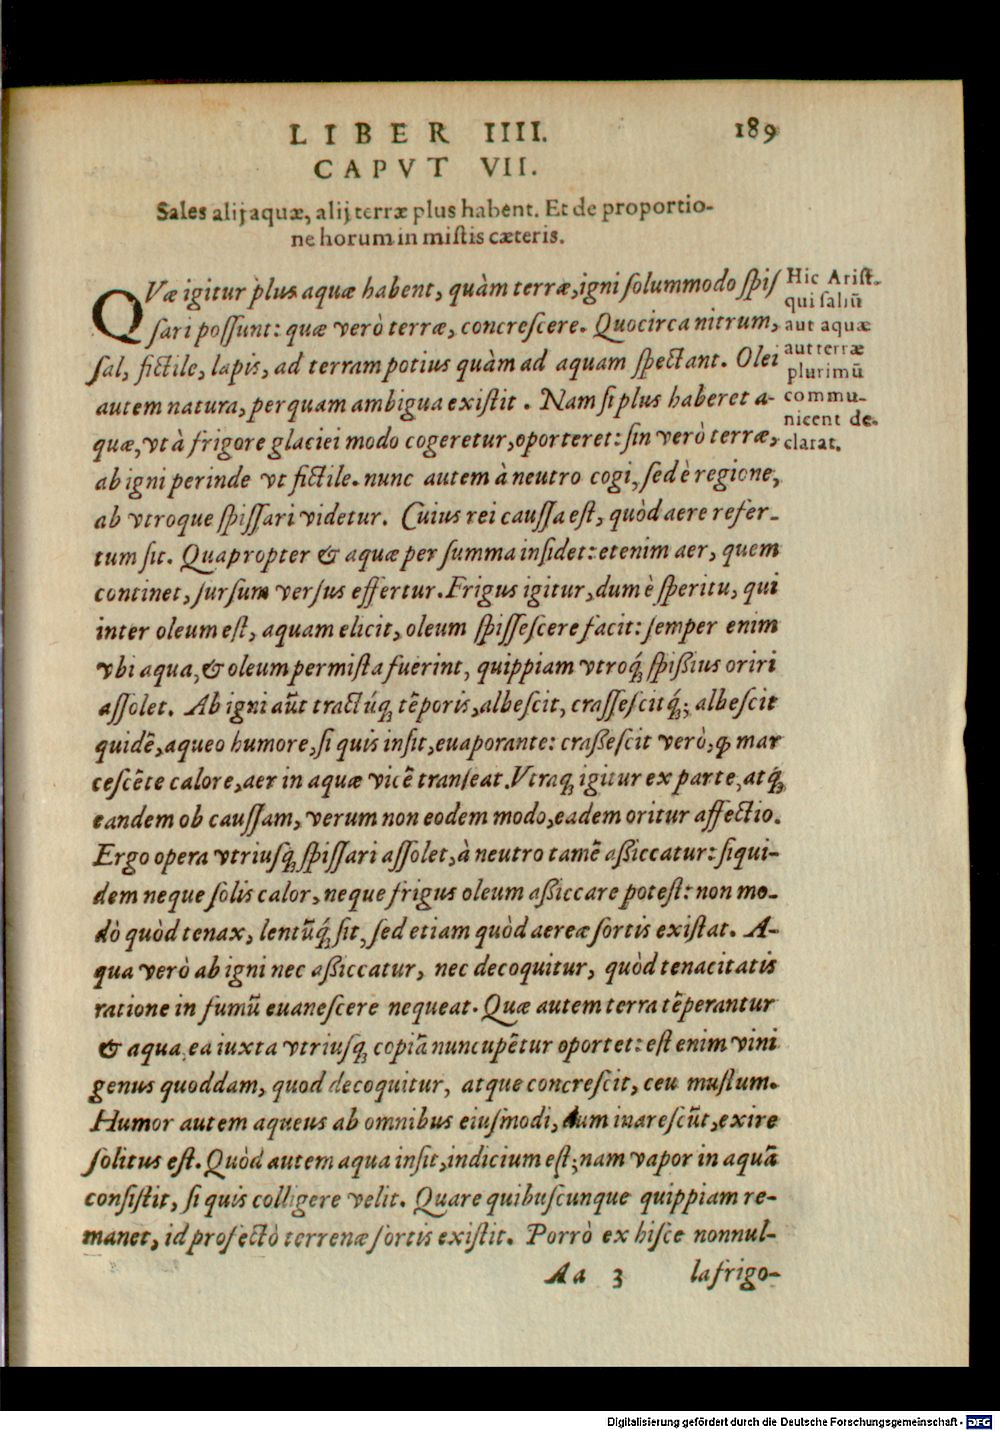 LIBER IIII. 189
CAPVT VII.
Sales alij aquæ, alij terræ plus habent. Et de proportio-
ne horum in mistis cæteris.
QVæ igitur plus aquæ habent, quàm terræ, igni solummodo spis
sari possunt: quæ verò terræ, concrescere. Quocirca nitrum,
sal, fictile, lapis, ad terram potius quàm ad aquam spectant. Olei
autem natura, perquam ambigua existit. Nam si plus haberet a-
quæ, vt à frigore glaciei modo cogeretur, oporteret: sin verò terræ,
ab igni perinde vt fictile. nunc autem à neutro cogi, sed è regione,
ab vtroque spissari videtur. Cuius rei caussa est, quòd aere refer-
tum sit. Quapropter & aquæ per summa insidet: etenim aer, quem
continet, sursum versus effertur. Frigus igitur, dum è speritu, qui
inter oleum est, aquam elicit, oleum spissescere facit: semper enim
vbi aqua, & oleum permista fuerint, quippiam vtroq́ꝫ spißius oriri
assolet. Ab igni aūt tractúqꝫ tēporis, albescit, crassescitq́ꝫ; albescit
quidē, aqueo humore, si quis insit, euaporante: craßescit verò, ꝙ mar
cescēte calore, aer in aquæ vicē transeat. Vtraqꝫ igitur ex parte, atq́ꝫ
eandem ob caussam, verum non eodem modo, eadem oritur affectio.
Ergo opera vtriusqꝫ spissari assolet, à neutro tamē aßiccatur: siqui-
dem neque solis calor, neque frigus oleum aßiccare potest: non mo-
dò quòd tenax, lentūq́ꝫ sit, sed etiam quòd aereæ sortis existat. A-
qua verò ab igni nec aßiccatur, nec decoquitur, quòd tenacitatis
ratione in fumū euanescere nequeat. Quæ autem terra tēperantur
& aqua, ea iuxta vtriusqꝫ copiā nuncupētur oportet: est enim vini
genus quoddam, quod decoquitur, atque concrescit, ceu mustum.
Humor autem aqueus ab omnibus eiusmodi, dum inarescūt, exire
solitus est. Quòd autem aqua insit, indicium est; nam vapor in aquā
consistit, si quis colligere velit. Quare quibuscunque quippiam re-
manet, id profectò terrenæ sortis existit. Porrò ex hisce nonnul-
Aa 3 la frigo-
Hic Arist.
qui saliū
aut aquæ
aut terræ
plurimū
commu-
nicent de-
clarat.
Digitalisierung gefördert durch die Deutsche Forschungsgemeinschaft - DFG